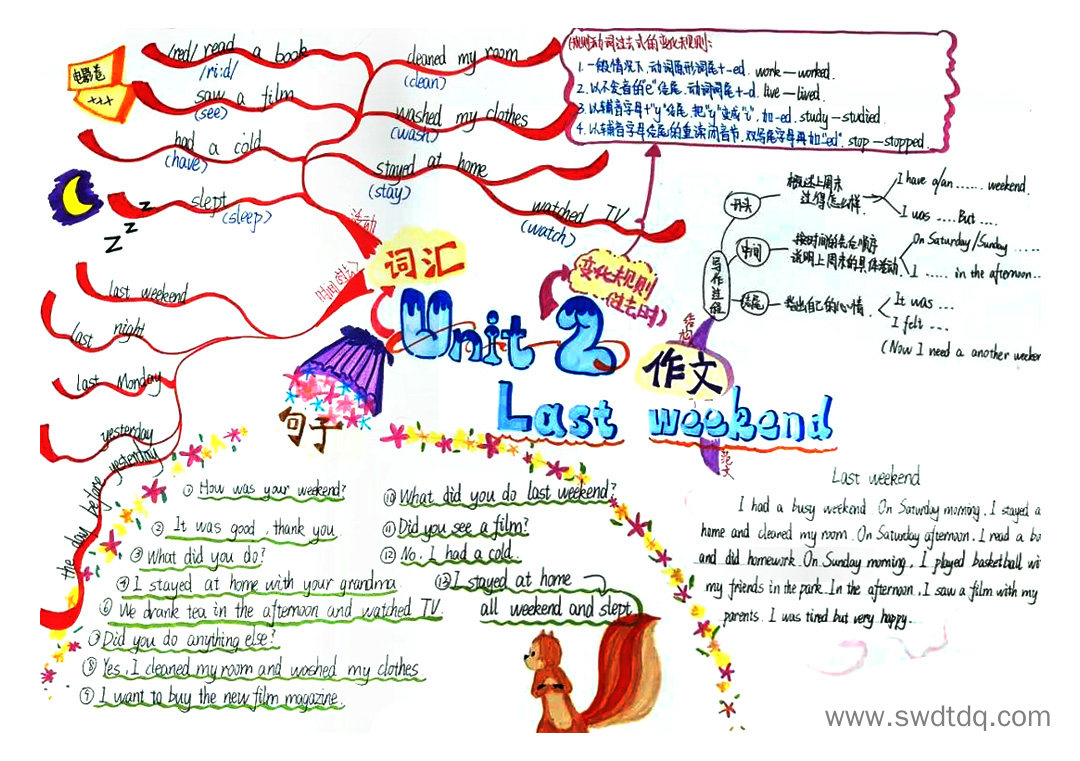 电影卷
xxx
/red/ read a book
/ri:d/
saw a film
(see)
had a cold
(have)
slept
(sleep)
z
z
z
cleaned my room
(clean)
washed my clothes
(wash)
stayed at home
(stay)
watched TV
(watch)
活动
词汇
last weekend
last night
last Monday
yesterday
the day before yesterday
规则动词过去式的变化规则:
1. 一般情况下,动词原形词尾+-ed. work—worked.
2. 以不发音的"e"结尾,动词词尾+-d. live—lived.
3. 以辅音字母+"y"结尾,把"y"变成"i",加-ed. study—studied
4. 以辅音字母结尾的重读闭音节,双写尾字母再加-ed" stop—stopped.
变化规则
(过去时)
Unit 2
Last weekend
结构
作文
范文
写作过程
开头
概述上周末
过得怎么样.
I have a/an ...... weekend.
I was .... But ....
中间
按时间的先后顺序
说明上周末的具体活动
On Saturday/Sunday .....
I ..... in the afternoon...
结尾
指出自己的心情.
It was ...
I felt ...
(Now I need a another weeker
句子
① How was your weekend?
② It was good, thank you
③ What did you do?
④ I stayed at home with your grandma.
⑥ We drank tea in the afternoon and watched TV.
⑦ Did you do anything else?
⑧ Yes, I cleaned my room and washed my clothes
⑨ I want to buy the new film magazine.
⑩ What did you do last weekend?
⑪ Did you see a film?
⑫ No, I had a cold.
⑬ I stayed at home
all weekend and slept
Last weekend
I had a busy weekend. On Saturday morning, I stayed a
home and cleaned my room. On Saturday afternoon, I read a bo
and did homework. On Sunday morning, I played basketball wi
my friends in the park. In the afternoon, I saw a film with my
parents. I was tired but very happy....
www.swdtdq.com